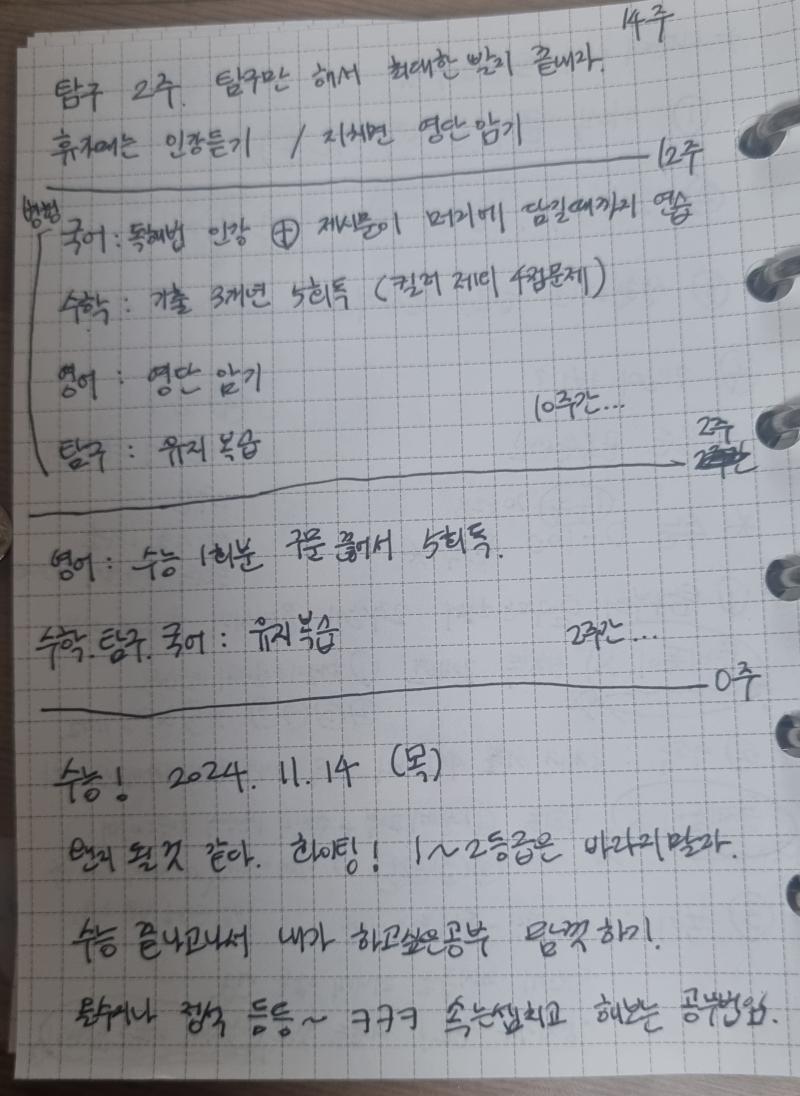 14주
탐구 2주. 탐구만 해서 최대한 빨리 끝내자.
휴가에는 인강듣기 / 지치면 영단암기
12주
병행
국어 : 독해법 인강 ⊕ 제시문이 머리에 담길때까지 연습
수학 : 기출 3개년 5회독 (킬러 제외 4점문제)
영어 : 영단 암기
10주간...
탐구 : 유지복습
2주
영어 : 수능 1회분 구문 끊어서 5회독.
수학.탐구.국어 : 유지복습 2주간...
0주
수능! 2024. 11. 14 (목)
왠지 될것 같다. 화이팅! 1~2등급은 바라지말자.
수능 끝나고나서 내가 하고싶은공부 맘껏하기.
정석 등등~ ㅋㅋㅋ 속는셈치고 해보는 공부법임.